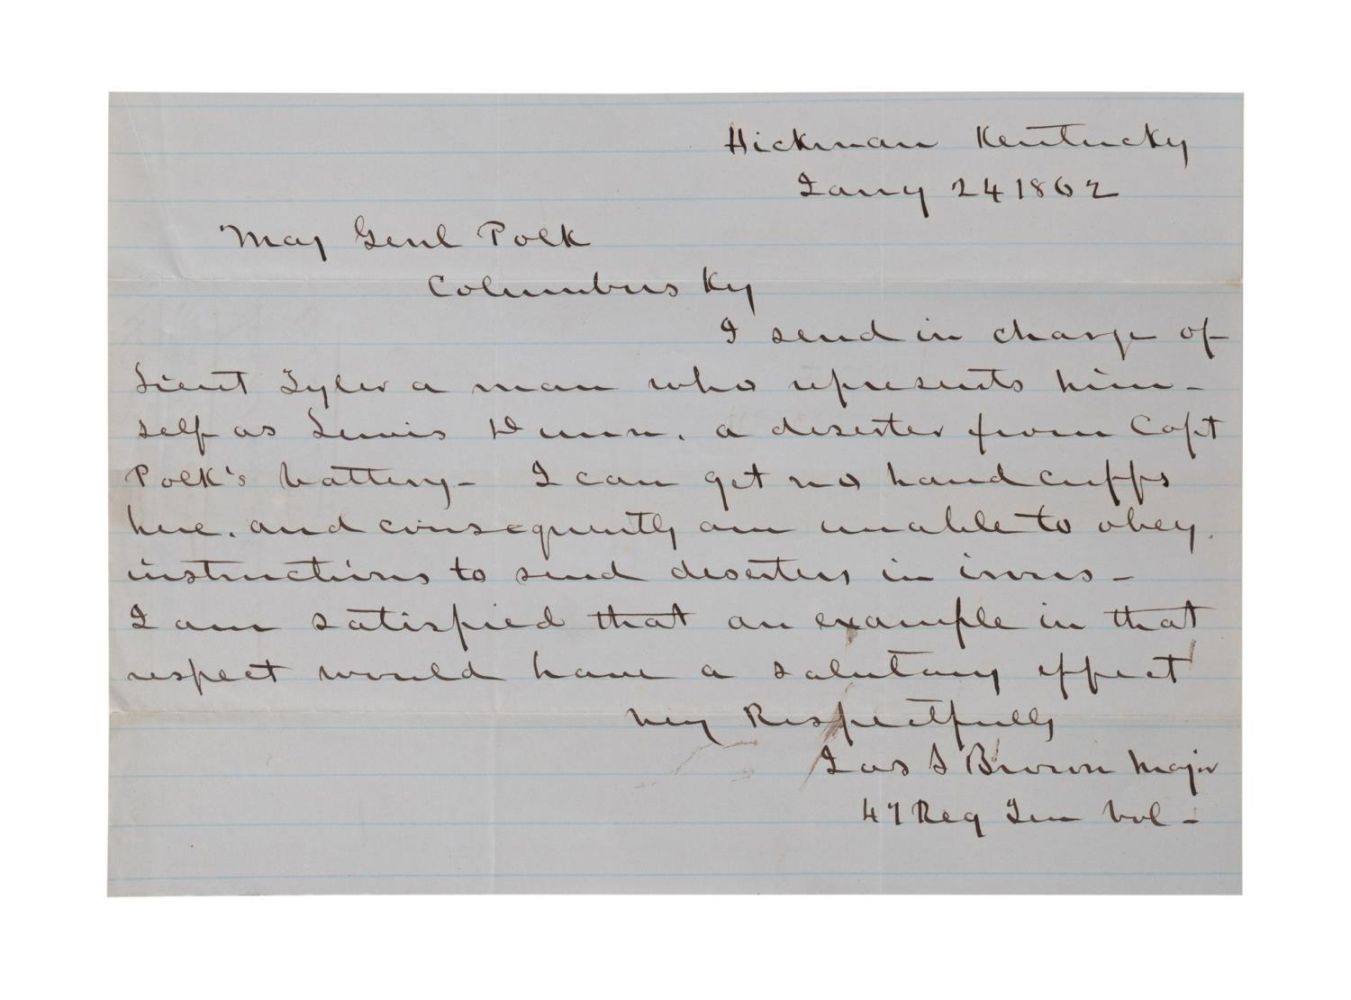 Hickman Kentucky
Jany 24 1862
Maj Genl Polk
Columbus Ky
I send in charge of
Lieut Tyler a man who represents him-
self as Lewis Dunn. a deserter from Capt
Polk's battery - I can get no handcuffs
here. and consequently am unable to obey.
instructions to send deserters in irons -
I am satisfied that an example in that
respect would have a salutary effect
Very Respectfully
Jas S Brown Major
47 Reg Ten Vol -